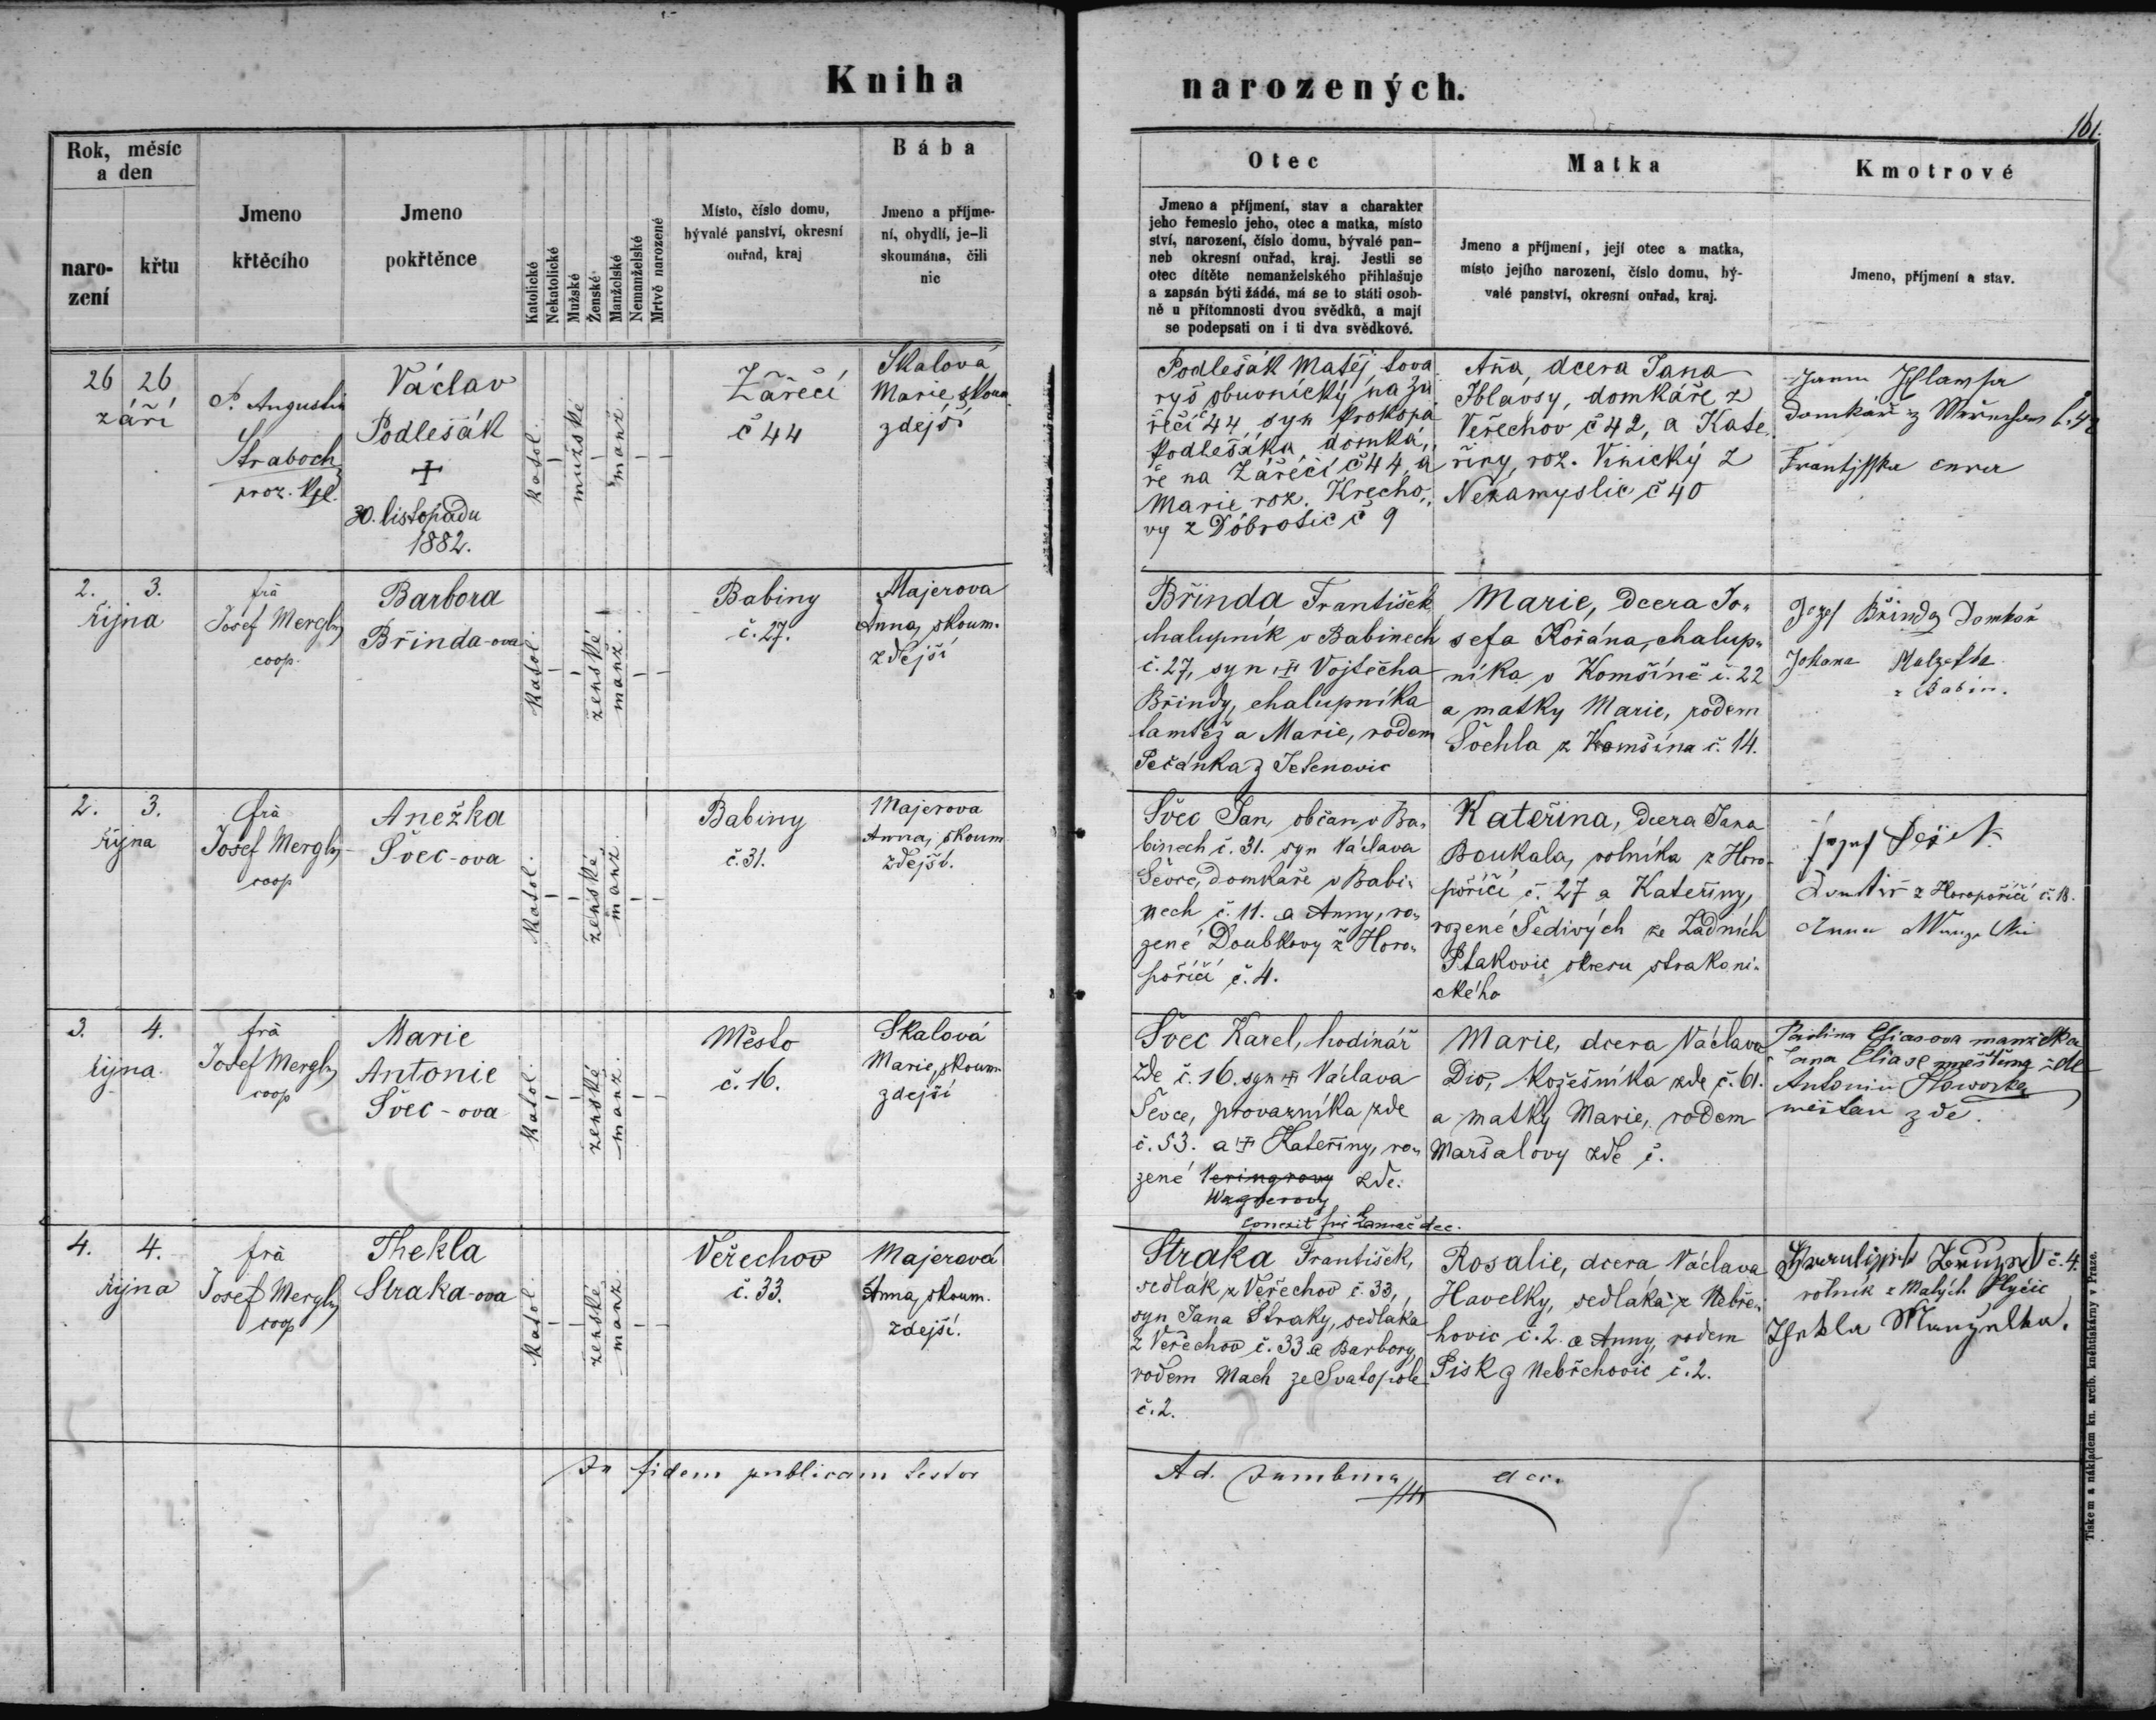 Kniha
narozených.
161.
Rok, měsíc
a den
naro-
zení
křtu
Jmeno
křtěcího
Jmeno
pokřtěnce
Katolické
Nekatolické
Mužské
Ženské
Manželské
Nemanželské
Mrtvě narozené
Místo, číslo domu,
bývalé panství, okresní
ouřad, kraj
Bába
Jmeno a příjme-
ní, obydlí, je-li
skoumána, čili
nic
Otec
Jmeno a příjmení, stav a charakter
jeho řemeslo jeho, otec a matka, místo
ství, narození, číslo domu, bývalé pan-
neb okresní ouřad, kraj. Jestli se
otec dítěte nemanželského přihlašuje
a zapsán býti žádá, má se to státi osob-
ně u přítomnosti dvou svědků, a mají
se podepsati on i ti dva svědkové.
Matka
Jmeno a příjmení, její otec a matka,
místo jejího narození, číslo domu, bý-
valé panství, okresní ouřad, kraj.
Kmotrové
Jmeno, příjmení a stav.
26 26
září
P. Augustin
Straboch
Václav
Podlešák
+
30. listopadu
1882.
katol.
mužské
manž.
Zářečí
č 44
Skalová
Marie skoum
zdejší
Podlešák Matěj, tova
ryš obuvnický na Zá
řečí 44 syn Prokopa
Podlešáka, domká-
ře na Zářečí č 44, a
Marie roz. Krecho-
vy z Dobrotic č 9
Aňa, dcera Jana
Jhlavsy, domkáře z
Veřechov č 42, a Kate
řiny, roz. Vinický z
Nezamyslic č 40
domkář z
Frantisska
2. 3.
října
frà
Josef Mergly
coop.
Barbora
Břinda-ova
katol.
ženské
manž.
Babiny
č. 27.
Majerova
Anna, skoum.
zdejší
Břinda František
chalupník v Babinech
č. 27, syn + Vojtěcha
Břindy, chalupníka
tamtéž a Marie, rodem
Pečánka z Jetenovic
Marie, dcera Jo-
sefa Kořána, chalup-
níka v Komšíně č. 22
a matky Marie, rodem
Šochla z Komšína č. 14.
Jozef Břinda Domkař
Johana
z Babin.
2. 3.
října
frà
Josef Mergly
coop
Anežka
Švec-ova
katol.
ženské
manž.
Babiny
č. 31.
Majerova
Anna, skoum
zdejší.
Švec Jan, občan v Ba-
binech č. 31. syn Václava
Ševce, domkaře v Babi-
nech č. 11. a Anny, ro-
zené Doubkovy z Horo-
poříčí č. 4.
Kateřina, dcera Jana
Boukala, rolníka z Horo-
poříčí č. 27 a Kateřiny,
rozené Šedivých ze Zadních
Ptakovic okresu strakoni-
ckého
z Horopoříčí č. 18.
Anna
3. 4.
října
frà
Josef Mergly
coop
Marie
Antonie
Švec-ova
katol.
ženské
manž.
Město
č. 16.
Skalová
Marie, skoum.
zdejší
Švec Karel, hodinář
zde č. 16. syn + Václava
Ševce, provazníka zde
č. 53. a + Kateřiny, ro-
zené Veringrovy zde.
Wagnerovy
Marie, dcera Václava
Dio, Kožešníka zde č. 61.
a matky Marie, rodem
Maršalovy zde č.
Paolina Eliasova manželka
Jana Eliase měštína zde
Antonin Haworka
měštan zde.
4. 4.
října
frà
Josef Mergly
coop
Thekla
Straka-ova
katol.
ženské
manž.
Veřechov
č. 33.
Majerová
Anna, skoum.
zdejší.
Straka František,
sedlák z Veřechov č. 33,
syn Jana Straky, sedláka
z Veřechov č. 33 a Barbory,
rodem Mach ze Svatopole
č. 2.
Rosalie, dcera Václava
Havelky, sedláka z Nebře-
hovic č. 2. a Anny, rodem
Pisk z Nebřehovic č. 2.
č. 4.
rolník z Malých Hyčic
Thekla
In fidem publicam testor
Ad.
dec.
Tiskem a nákladem kn. arcib. kněhtiskárny v Praze.